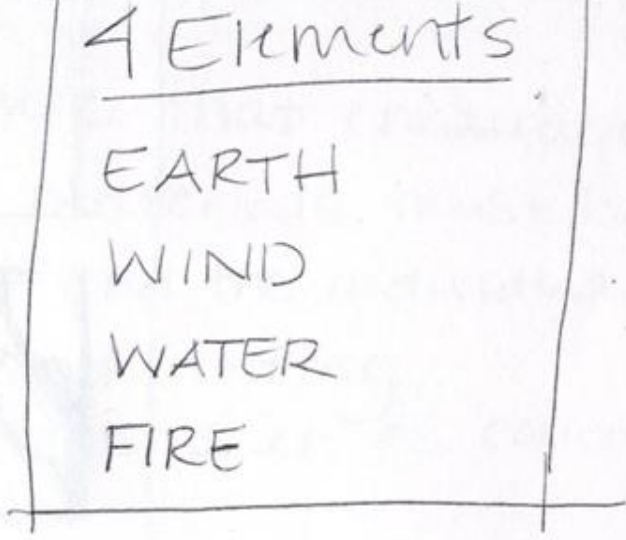 4 Elements
EARTH
WIND
WATER
FIRE